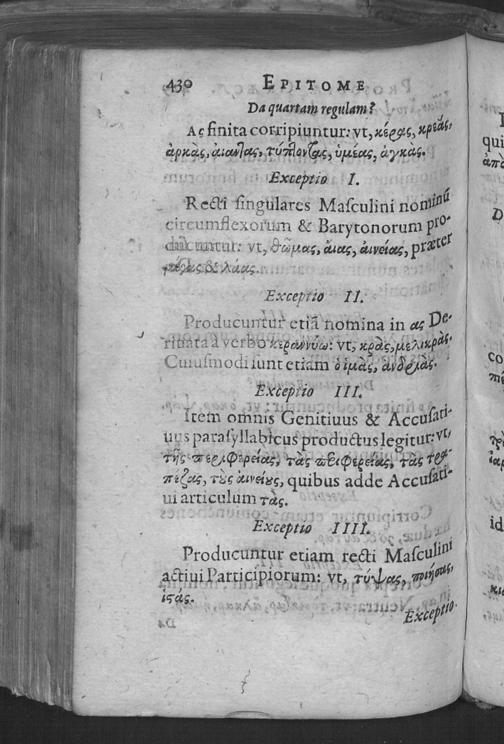 430 EPITOME
Da quartam regulam?
Ας finita corripiuntur: vt, κέρας, κρέας,
ἀρκὰς, αἴαντας, τύπτοντας, ὑμέας, ἀγκὰς.
Exceptio I.
Recti singulares Masculini nominū
circumflexorum & Barytonorum pro-
ducuntur: vt, θῶμας, αἴας, αἰνείας, præter
& λάας.
Exceptio II.
Producuntur etiā nomina in ας De-
riuata a verbo κεραννύω: vt, κρὰς, μελικρὰς.
Cuiusmodi sunt etiam διμὰς, ἀνδριὰς.
Exceptio III.
Item omnis Genitiuus & Accusati-
uus parasyllabicus productus legitur: vt,
τῆς περιφερείας, τὰς περιφερείας, τὰς τρα-
πέζας, τοὺς αἰνείους, quibus adde Accusati-
ui articulum τὰς.
Exceptio IIII.
Producuntur etiam recti Masculini
actiui Participiorum: vt, τύψας, ποιήσας,
ἱστάς.
Exceptio